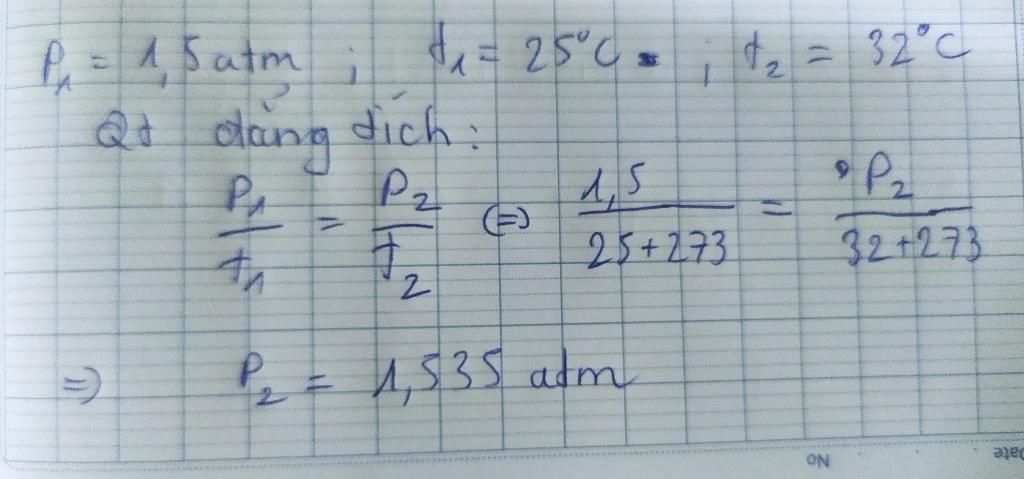 P₁ = 1,5 atm ; t₁ = 25°C ; t₂ = 32°C
Qt đẳng tích:
P₁/t₁ = P₂/t₂ (=) 1,5/25+273 = P₂/32+273
=) P₂ = 1,535 atm
No Date